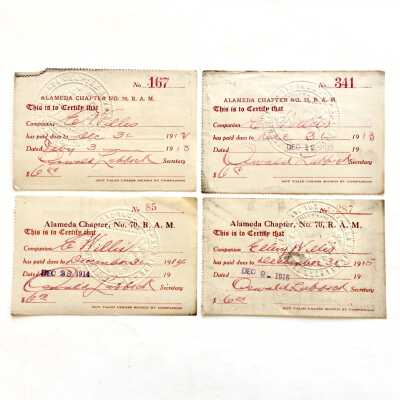 No 167
ALAMEDA CHAPTER NO. 70, R. A. M.
This is to Certify that
Companion E Willis
has paid dues to Dec 31 1912
Dated 3 19
Oswald Lubbock Secretary
$6.00
NOT VALID UNLESS SIGNED BY COMPANION
No 341
ALAMEDA CHAPTER NO. 70, R. A. M.
This is to Certify that
Companion E Willis
has paid dues to Dec 31 1913
Dated DEC 19
Oswald Lubbock Secretary
$6.00
NOT VALID UNLESS SIGNED BY COMPANION
No 85
Alameda Chapter, No. 70, R. A. M.
This is to Certify that
Companion E Willis
has paid dues to December 31 1914
Dated DEC 23 1914 19
Oswald Lubbock Secretary
$6.00
NOT VALID UNLESS SIGNED BY COMPANION
No 287
Alameda Chapter, No. 70, R. A. M.
This is to Certify that
Companion Ellery Willis
has paid dues to December 31 1915
Dated DEC 2- 1915 19
Oswald Lubbock Secretary
$6.00
NOT VALID UNLESS SIGNED BY COMPANION